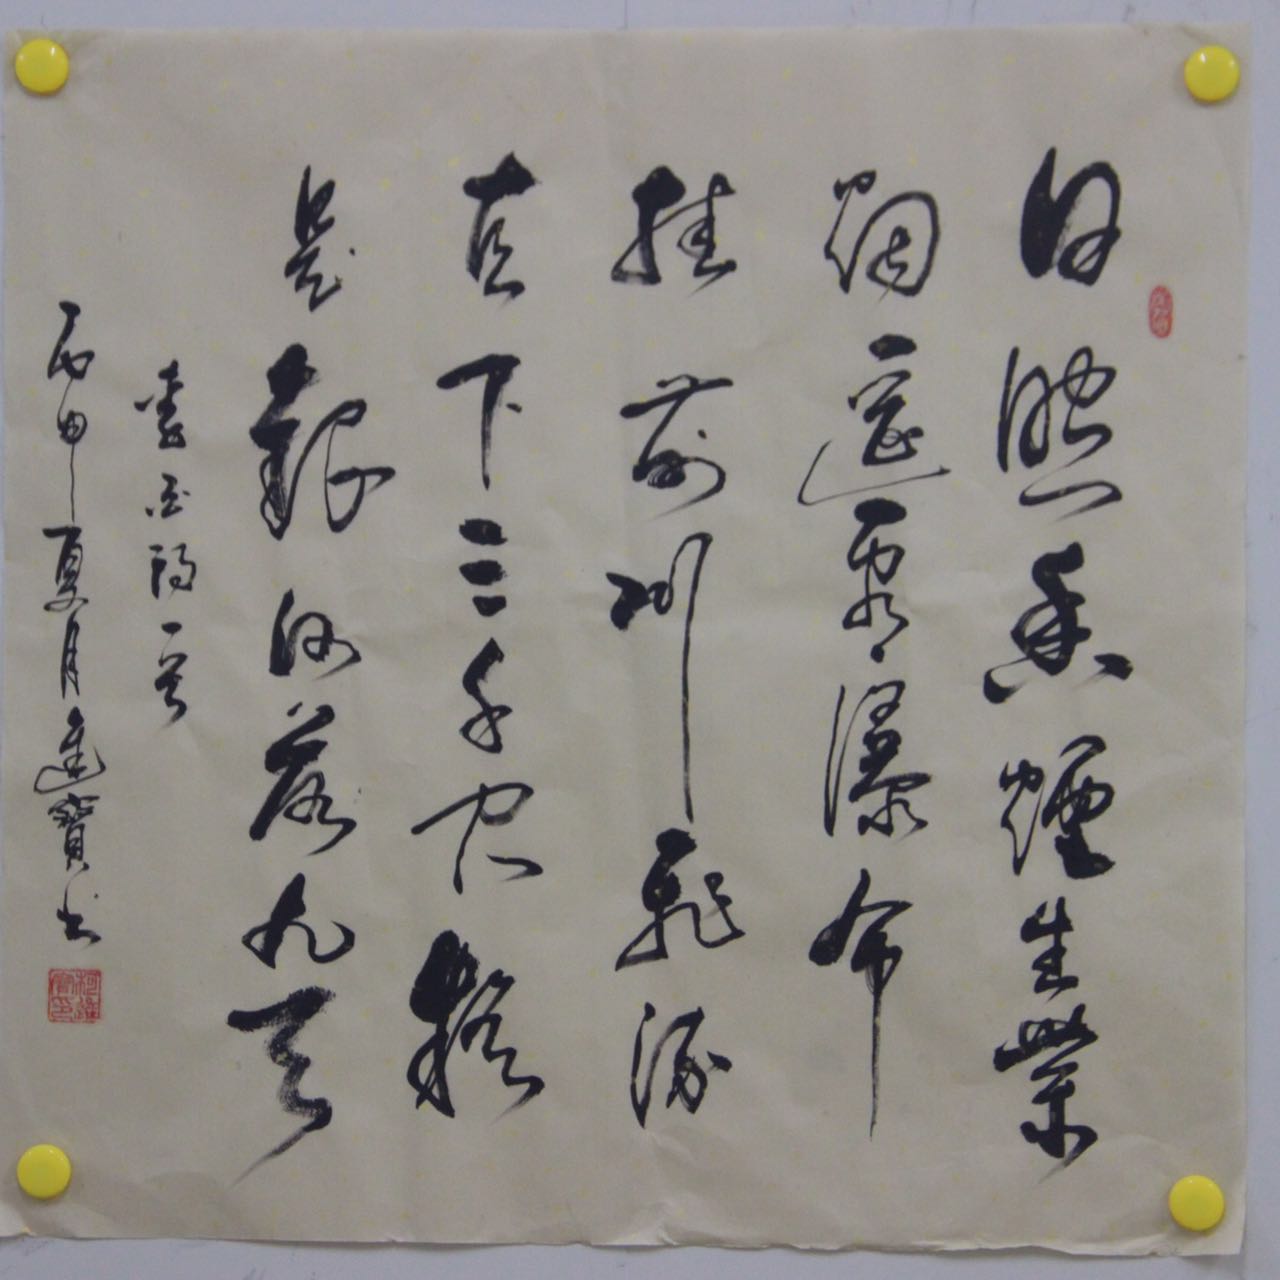 日照香爐生紫
烟遥看瀑布
挂前川飛流
直下三千尺疑
是銀河落九天
李白詩一首
丙申夏月進寶書
柯進寶印